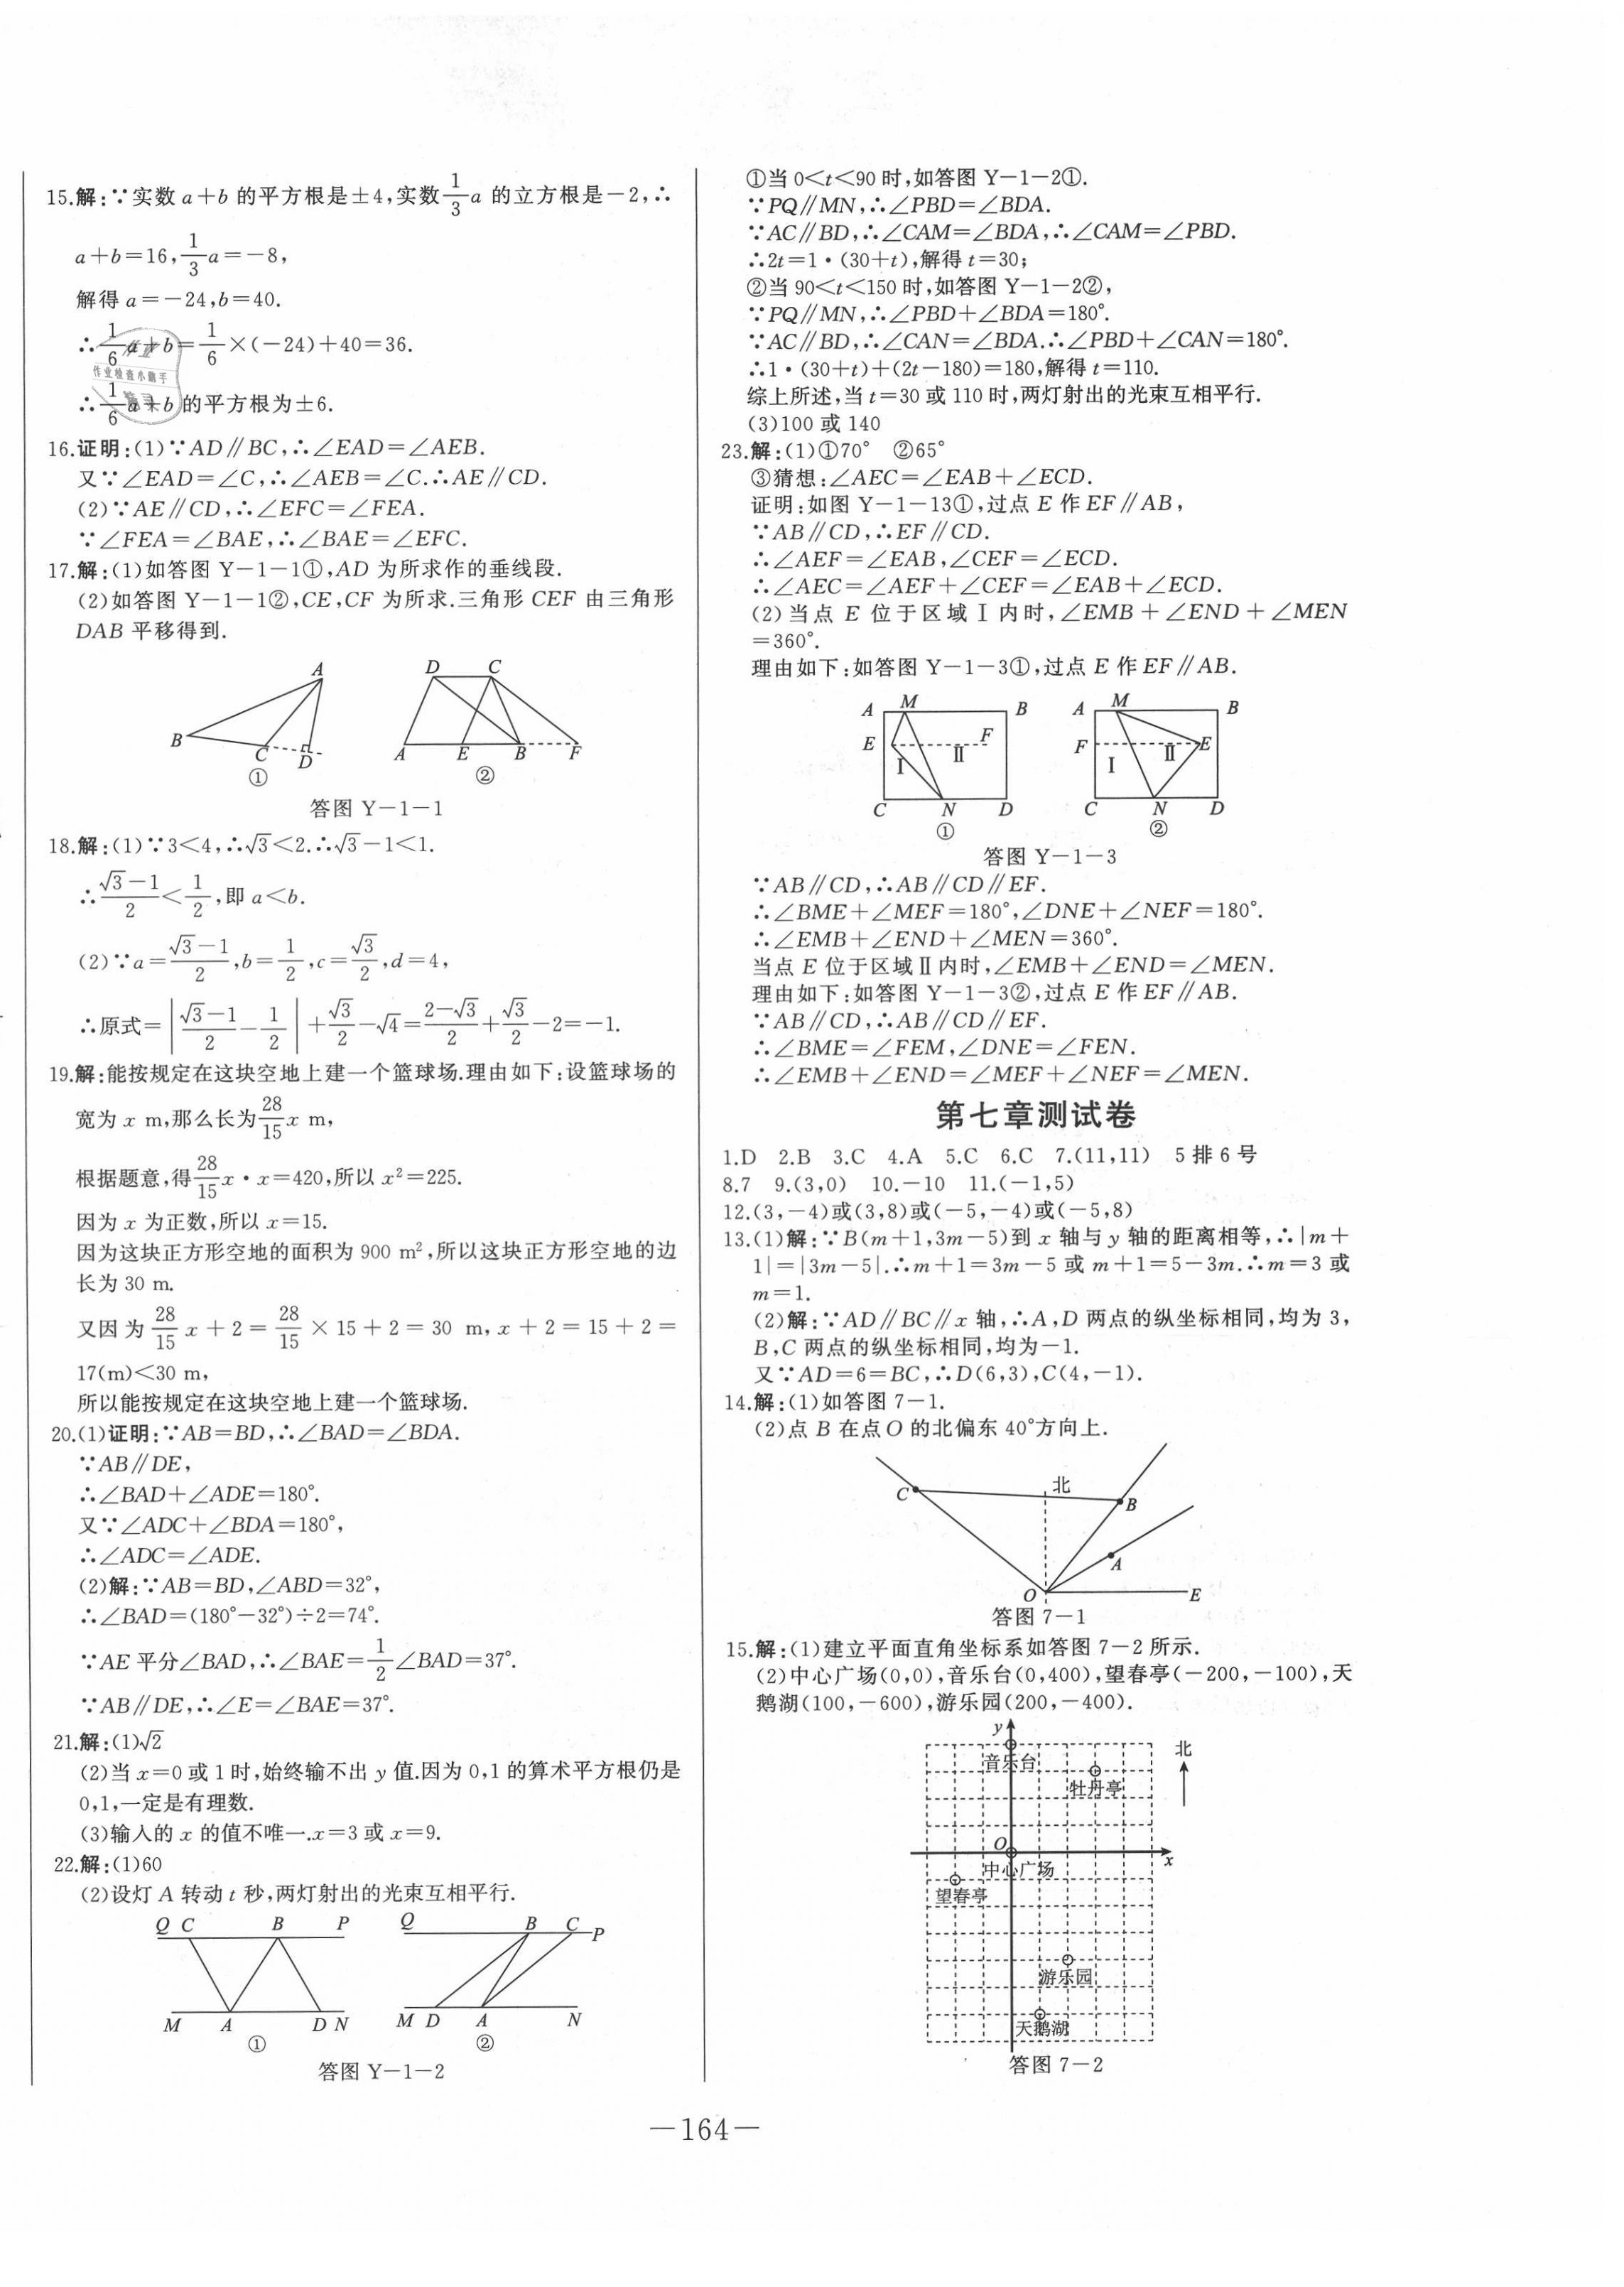 15.解:∵实数 a+b 的平方根是±4,实数1/3a 的立方根是-2,∴
a+b=16,1/3a=-8,
解得 a=-24,b=40.
∴1/6a+b=1/6×(-24)+40=36.
作业检查小助手
∴1/6a+b的平方根为±6.
16.证明:(1)∵AD∥BC,∴∠EAD=∠AEB.
又∵∠EAD=∠C,∴∠AEB=∠C.∴AE∥CD.
(2)∵AE∥CD,∴∠EFC=∠FEA.
∵∠FEA=∠BAE,∴∠BAE=∠EFC.
17.解:(1)如答图 Y-1-1①,AD 为所求作的垂线段.
(2)如答图 Y-1-1②,CE,CF 为所求.三角形 CEF 由三角形
DAB 平移得到.
A
B
C
D
①
D C
A E B F
②
答图 Y-1-1
18.解:(1)∵3<4,∴√3<2.∴√3-1<1.
∴(√3-1)/2<1/2,即 a<b.
(2)∵a=(√3-1)/2,b=1/2,c=√3/2,d=4,
∴原式=|(√3-1)/2-1/2|+√3/2-√4=(2-√3)/2+√3/2-2=-1.
19.解:能按规定在这块空地上建一个篮球场.理由如下:设篮球场的
宽为 x m,那么长为28/15x m,
根据题意,得28/15x·x=420,所以 x²=225.
因为 x 为正数,所以 x=15.
因为这块正方形空地的面积为 900 m²,所以这块正方形空地的边
长为 30 m.
又因为28/15x+2=28/15×15+2=30 m,x+2=15+2=
17(m)<30 m,
所以能按规定在这块空地上建一个篮球场.
20.(1)证明:∵AB=BD,∴∠BAD=∠BDA.
∵AB∥DE,
∴∠BAD+∠ADE=180°.
又∵∠ADC+∠BDA=180°,
∴∠ADC=∠ADE.
(2)解:∵AB=BD,∠ABD=32°,
∴∠BAD=(180°-32°)÷2=74°.
∵AE 平分∠BAD,∴∠BAE=1/2∠BAD=37°.
∵AB∥DE,∴∠E=∠BAE=37°.
21.解:(1)√2
(2)当 x=0 或 1 时,始终输不出 y 值.因为 0,1 的算术平方根仍是
0,1,一定是有理数.
(3)输入的 x 的值不唯一.x=3 或 x=9.
22.解:(1)60
(2)设灯 A 转动 t 秒,两灯射出的光束互相平行.
Q C B P
M A D N
①
Q B C P
M D A N
②
答图 Y-1-2
①当 0<t<90 时,如答图 Y-1-2①.
∵PQ∥MN,∴∠PBD=∠BDA.
∵AC∥BD,∴∠CAM=∠BDA,∴∠CAM=∠PBD.
∴2t=1·(30+t),解得 t=30;
②当 90<t<150 时,如答图 Y-1-2②,
∵PQ∥MN,∴∠PBD+∠BDA=180°.
∵AC∥BD,∴∠CAN=∠BDA.∴∠PBD+∠CAN=180°.
∴1·(30+t)+(2t-180)=180,解得 t=110.
综上所述,当 t=30 或 110 时,两灯射出的光束互相平行.
(3)100 或 140
23.解:(1)①70° ②65°
③猜想:∠AEC=∠EAB+∠ECD.
证明:如图 Y-1-13①,过点 E 作 EF∥AB,
∵AB∥CD,∴EF∥CD.
∴∠AEF=∠EAB,∠CEF=∠ECD.
∴∠AEC=∠AEF+∠CEF=∠EAB+∠ECD.
(2)当点 E 位于区域Ⅰ内时,∠EMB+∠END+∠MEN
=360°.
理由如下:如答图 Y-1-3①,过点 E 作 EF∥AB.
A M B
E F
Ⅰ Ⅱ
C N D
①
A M B
F E
Ⅰ Ⅱ
C N D
②
答图 Y-1-3
∵AB∥CD,∴AB∥CD∥EF.
∴∠BME+∠MEF=180°,∠DNE+∠NEF=180°.
∴∠EMB+∠END+∠MEN=360°.
当点 E 位于区域Ⅱ内时,∠EMB+∠END=∠MEN.
理由如下:如答图 Y-1-3②,过点 E 作 EF∥AB.
∵AB∥CD,∴AB∥CD∥EF.
∴∠BME=∠FEM,∠DNE=∠FEN.
∴∠EMB+∠END=∠MEF+∠NEF=∠MEN.
第七章测试卷
1.D 2.B 3.C 4.A 5.C 6.C 7.(11,11) 5 排 6 号
8.7 9.(3,0) 10.-10 11.(-1,5)
12.(3,-4)或(3,8)或(-5,-4)或(-5,8)
13.(1)解:∵B(m+1,3m-5)到 x 轴与 y 轴的距离相等,∴|m+
1|=|3m-5|.∴m+1=3m-5 或 m+1=5-3m.∴m=3 或
m=1.
(2)解:∵AD∥BC∥x 轴,∴A,D 两点的纵坐标相同,均为 3,
B,C 两点的纵坐标相同,均为-1.
又∵AD=6=BC,∴D(6,3),C(4,-1).
14.解:(1)如答图 7-1.
(2)点 B 在点 O 的北偏东 40°方向上.
北
C
B
A
O E
答图 7-1
15.解:(1)建立平面直角坐标系如答图 7-2 所示.
(2)中心广场(0,0),音乐台(0,400),望春亭(-200,-100),天
鹅湖(100,-600),游乐园(200,-400).
y
音乐台
北
牡丹亭
O
x
中心广场
望春亭
游乐园
天鹅湖
答图 7-2
—164—